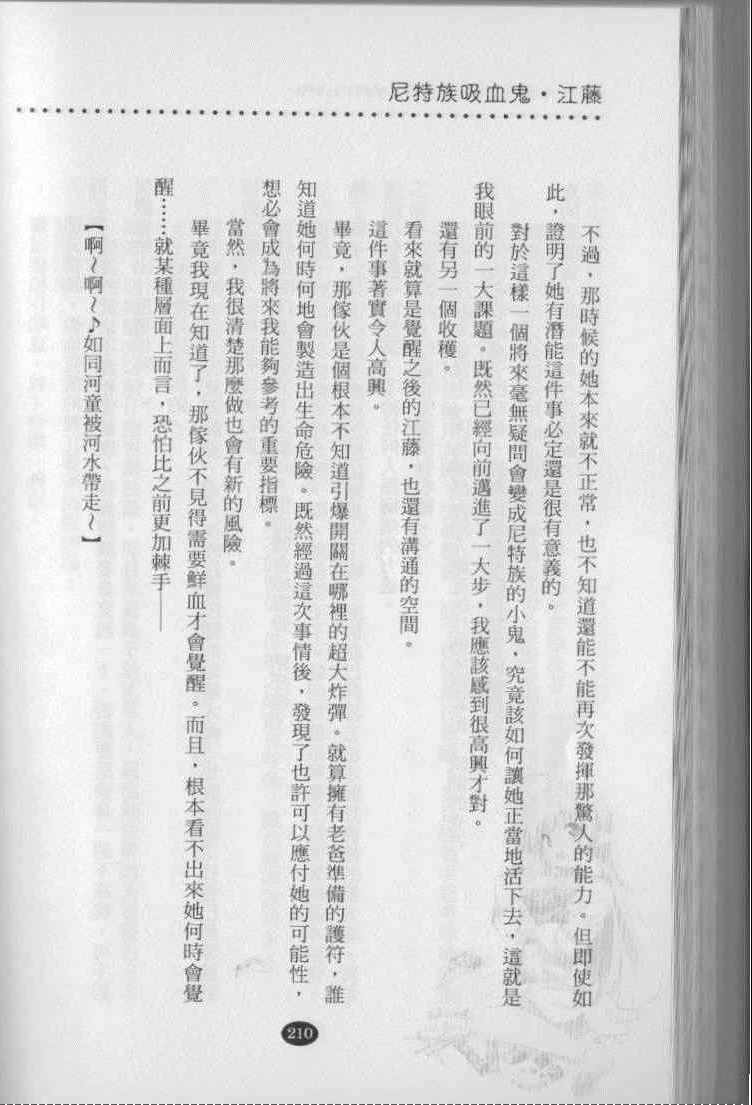 尼特族吸血鬼・江藤
不過，那時候的她本來就不正常，也不知道還能不能再次發揮那驚人的能力。但即使如
此，證明了她有潛能這件事必定還是很有意義的。
對於這樣一個將來毫無疑問會變成尼特族的小鬼，究竟該如何讓她正當地活下去，這就是
我眼前的一大課題。既然已經向前邁進了一大步，我應該感到很高興才對。
還有另一個收穫。
看來就算是覺醒之後的江藤，也還有溝通的空間。
這件事著實令人高興。
畢竟，那傢伙是個根本不知道引爆開關在哪裡的超大炸彈。就算擁有老爸準備的護符，誰
知道她何時何地會製造出生命危險。既然經過這次事情後，發現了也許可以應付她的可能性，
想必會成為將來我能夠參考的重要指標。
當然，我很清楚那麼做也會有新的風險。
畢竟我現在知道了，那傢伙不見得需要鮮血才會覺醒。而且，根本看不出來她何時會覺
醒……就某種層面上而言，恐怕比之前更加棘手——
【啊～啊～♪如同河童被河水帶走～】
210